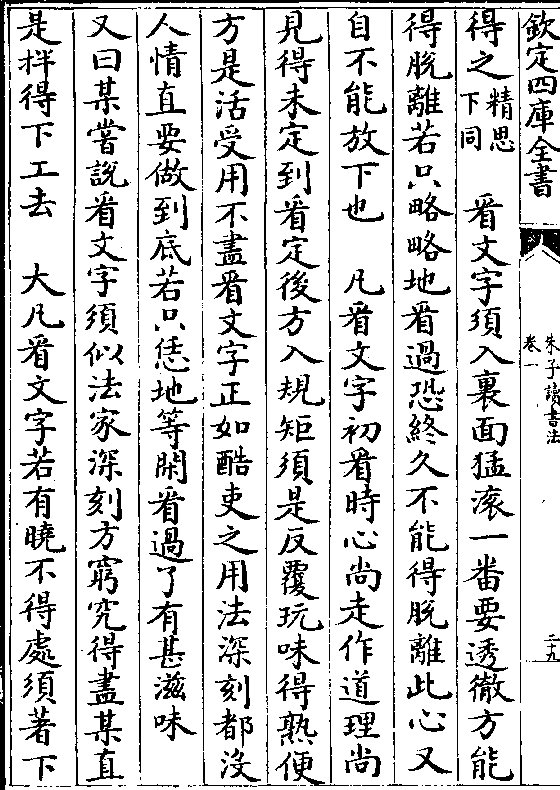 欽定四庫全書
朱子讀書法
卷一
二十九
得之精思下同　看文字須入裏面猛滚一番要透徹方能
得脫離若只略略地看過恐終久不能得脫離此心又
自不能放下也　凡看文字初看時心尚走作道理尚
見得未定到看定後方入規矩須是反覆玩味得熟便
方是活受用不盡看文字正如酷吏之用法深刻都沒
人情直要做到底若只恁地等閑看過了有甚滋味
又曰某嘗說看文字須似法家深刻方窮究得盡某直
是拌得下工去　大凡看文字若有曉不得處須著下